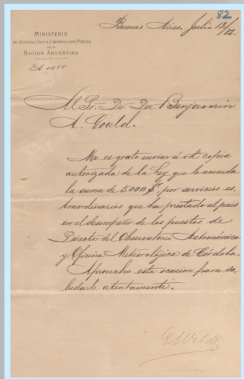 82
Buenos Aires, Julio 13/82.
MINISTERIO
DE JUSTICIA, CULTO E INSTRUCCION PÚBLICA
DE LA
NACION ARGENTINA
Al Sr. Dr. Dn. Benjamin
A. Gould.
Me es grato enviar á Vd. copia
autorizada de la Ley que le acuerda
la suma de 5.000 $f. por servicios es-
traordinarios que ha prestado al pais
en el desempeño de los puestos de
Director del Observatorio Astronómico
y Oficina Meteorolójica de Córdoba.
Aprovecho esta ocasion para sa-
ludarle atentamente.
E Wilde